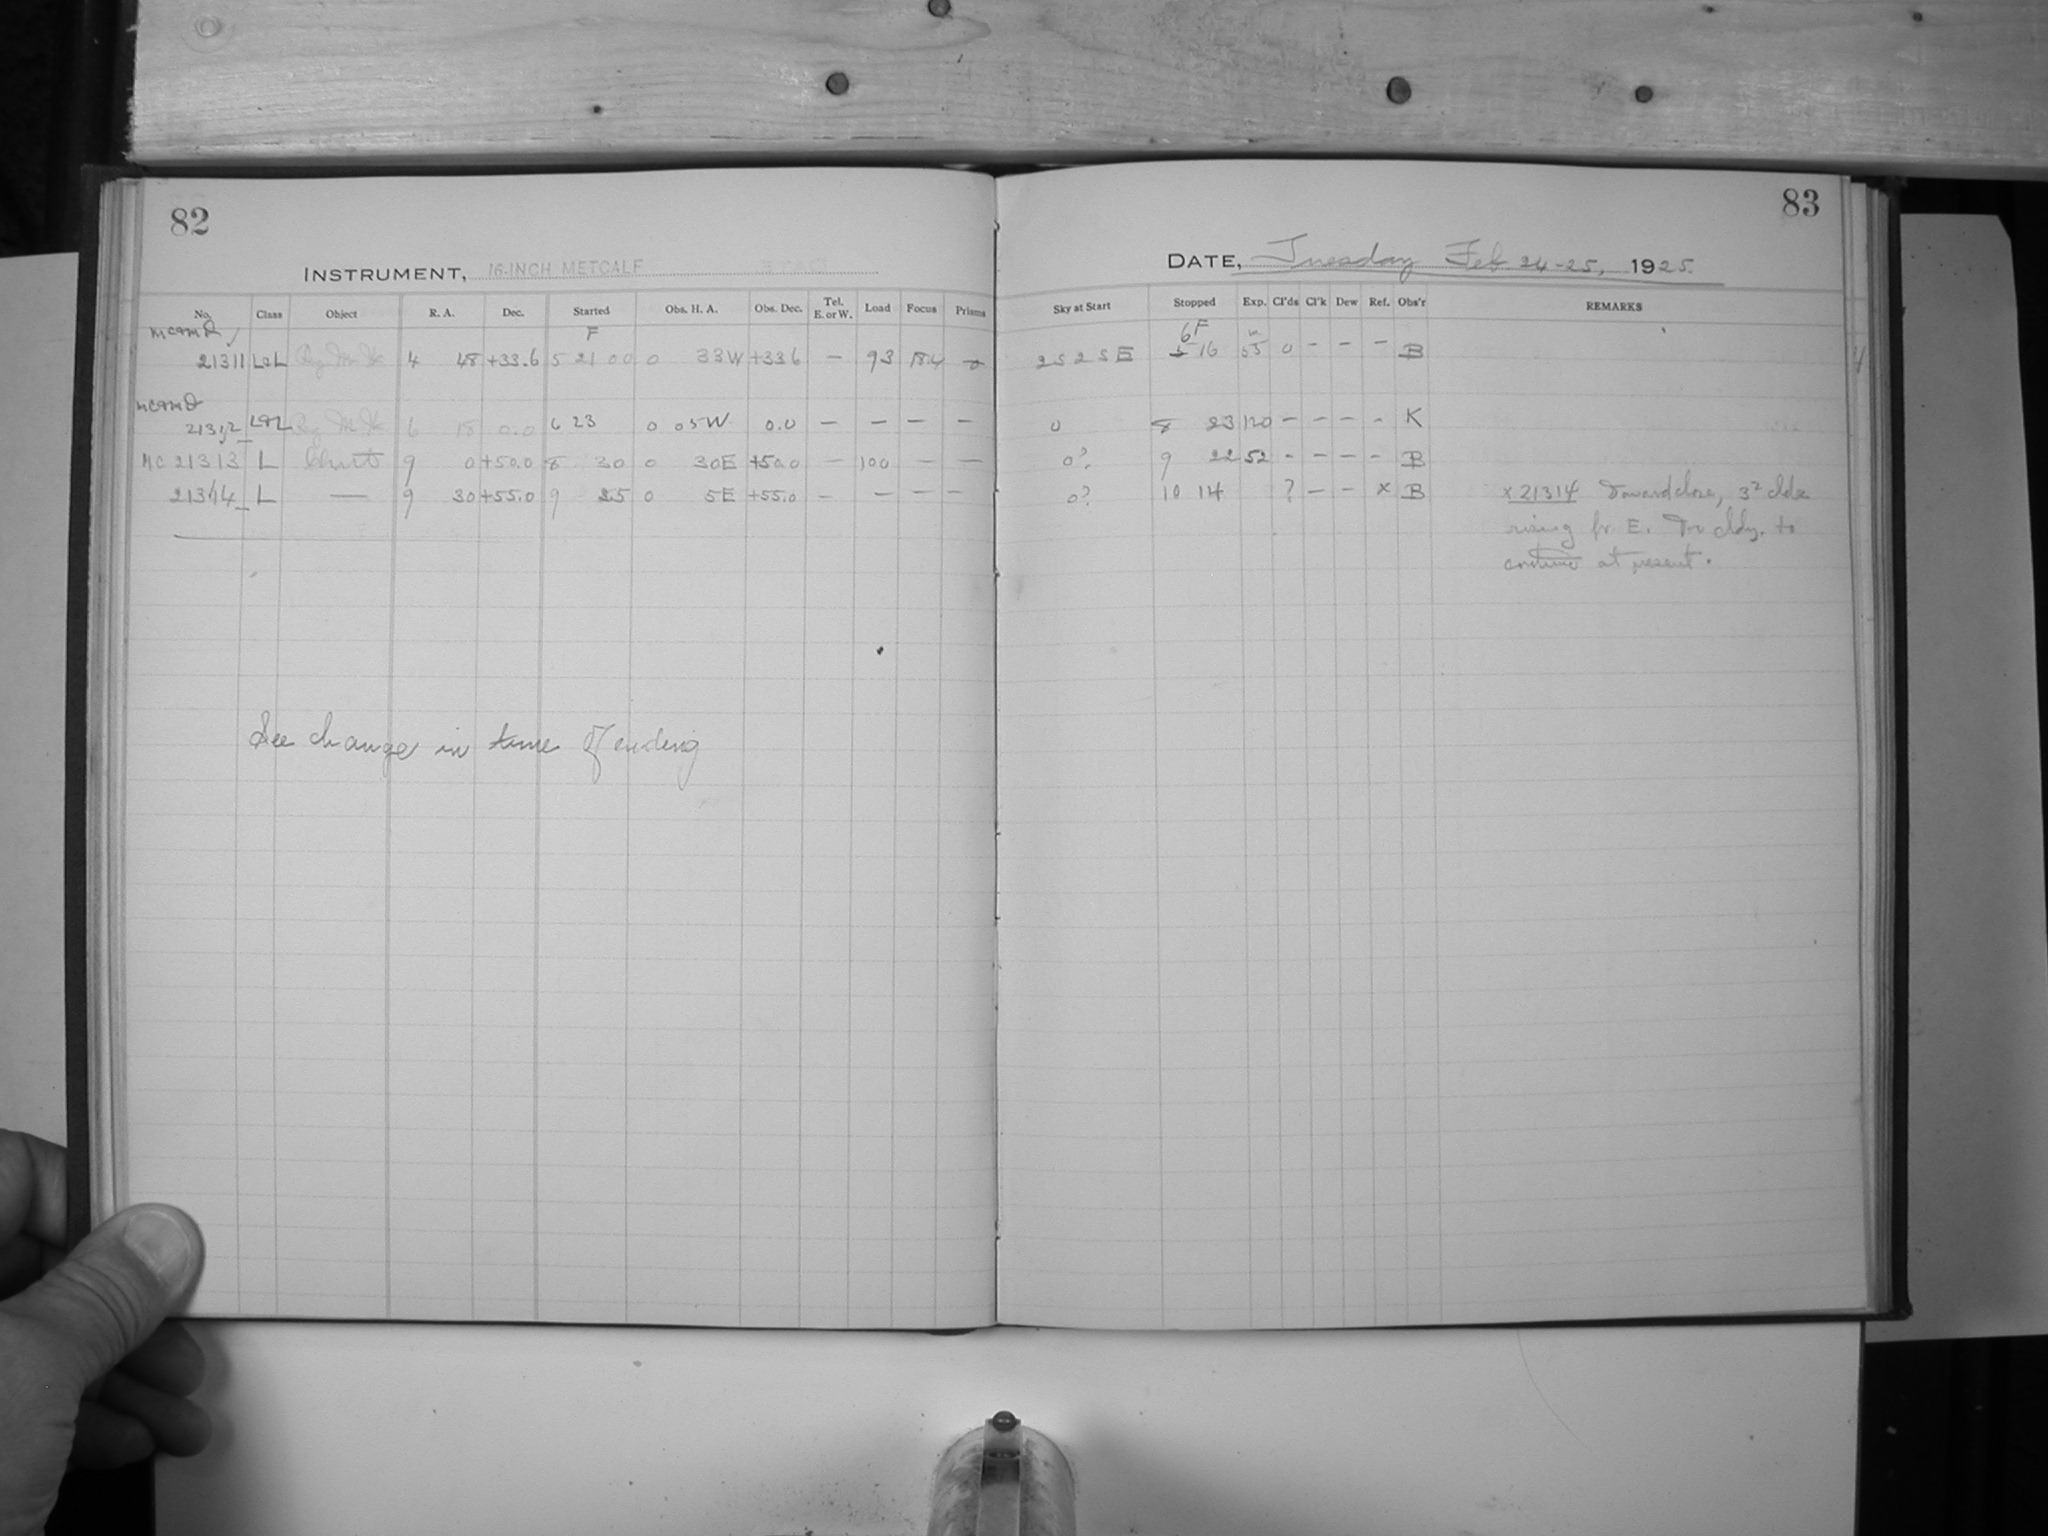 82
INSTRUMENT, 16-INCH METCALF
No. Class Object R. A. Dec. Started Obs. H. A. Obs. Dec. Tel. E. or W. Load Focus Prisms
F
21311 L&L 4 48 +33.6 5 21 00 0 33W +33.6 — 93 18.4 0
21312 L&L 6 18 0.0 6 23 0 05W 0.0 — — — —
MC 21313 L 9 0 +50.0 8 30 0 30E +50.0 — 100 — —
21314 L — 9 30 +55.0 9 25 0 5E +55.0 — — — —
See change in time of ending
83
DATE, Tuesday Feb 24-25, 1925
Sky at Start Stopped Exp. Cl'ds Cl'k Dew Ref. Obs'r REMARKS
6F m
2S 2SE 5 16 55 0 - - - B
0 8 23 120 - - - - K
0? 9 22 52 - - - - B
0? 10 14 ? - - x B x 21314 Toward close,
rising fr E. Too cldy. to
continue at present.